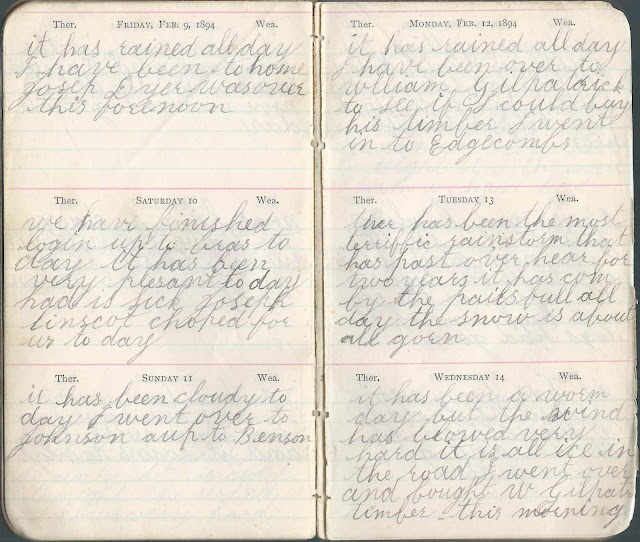 Ther. FRIDAY, FEB. 9, 1894 Wea.
it has rained all day
I have been to home
Josep Dyer was over
this forenoon
Ther. SATURDAY 10 Wea.
we hav finished
login up to bras to
day it has ben
very plesant to day
had is sick Joseph
linscot choped for
us to day
Ther. SUNDAY 11 Wea.
it has been cloudy to
day I went over to
Johnson a up to Benson
Ther. MONDAY, FEB. 12, 1894 Wea.
it has rained all day
I hav been over to
William Gilpatrick
to see if I could buy
his timber I went
in to Edgecombs
Ther. TUESDAY 13 Wea.
ther has been the most
terriffic rainstorm that
has past over hear for
two years it has com
by the pailsbull all
day the snow is about
all goen
Ther. WEDNESDAY 14 Wea.
it has been a worm
day but the wind
has blowed very
hard it is all ice in
the road I went over
and bought W Gilpatr
timber this morning